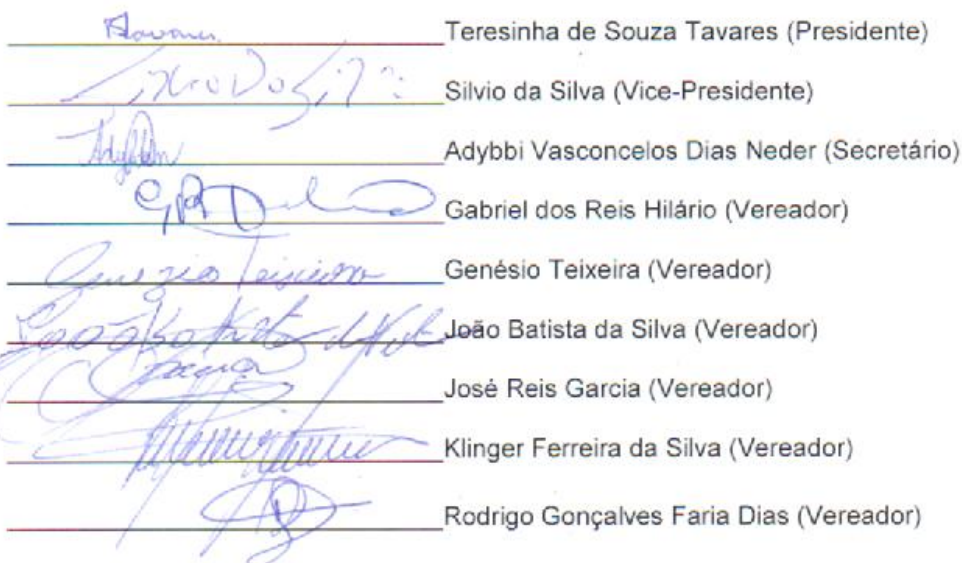 Tavares Teresinha de Souza Tavares (Presidente)
Silvio da Silva (Vice-Presidente)
Adybbi Vasconcelos Dias Neder (Secretário)
Gabriel dos Reis Hilário (Vereador)
Genésio Teixeira Genésio Teixeira (Vereador)
João Batista da Silva João Batista da Silva (Vereador)
José Reis Garcia (Vereador)
Klinger Ferreira da Silva (Vereador)
Rodrigo Gonçalves Faria Dias (Vereador)